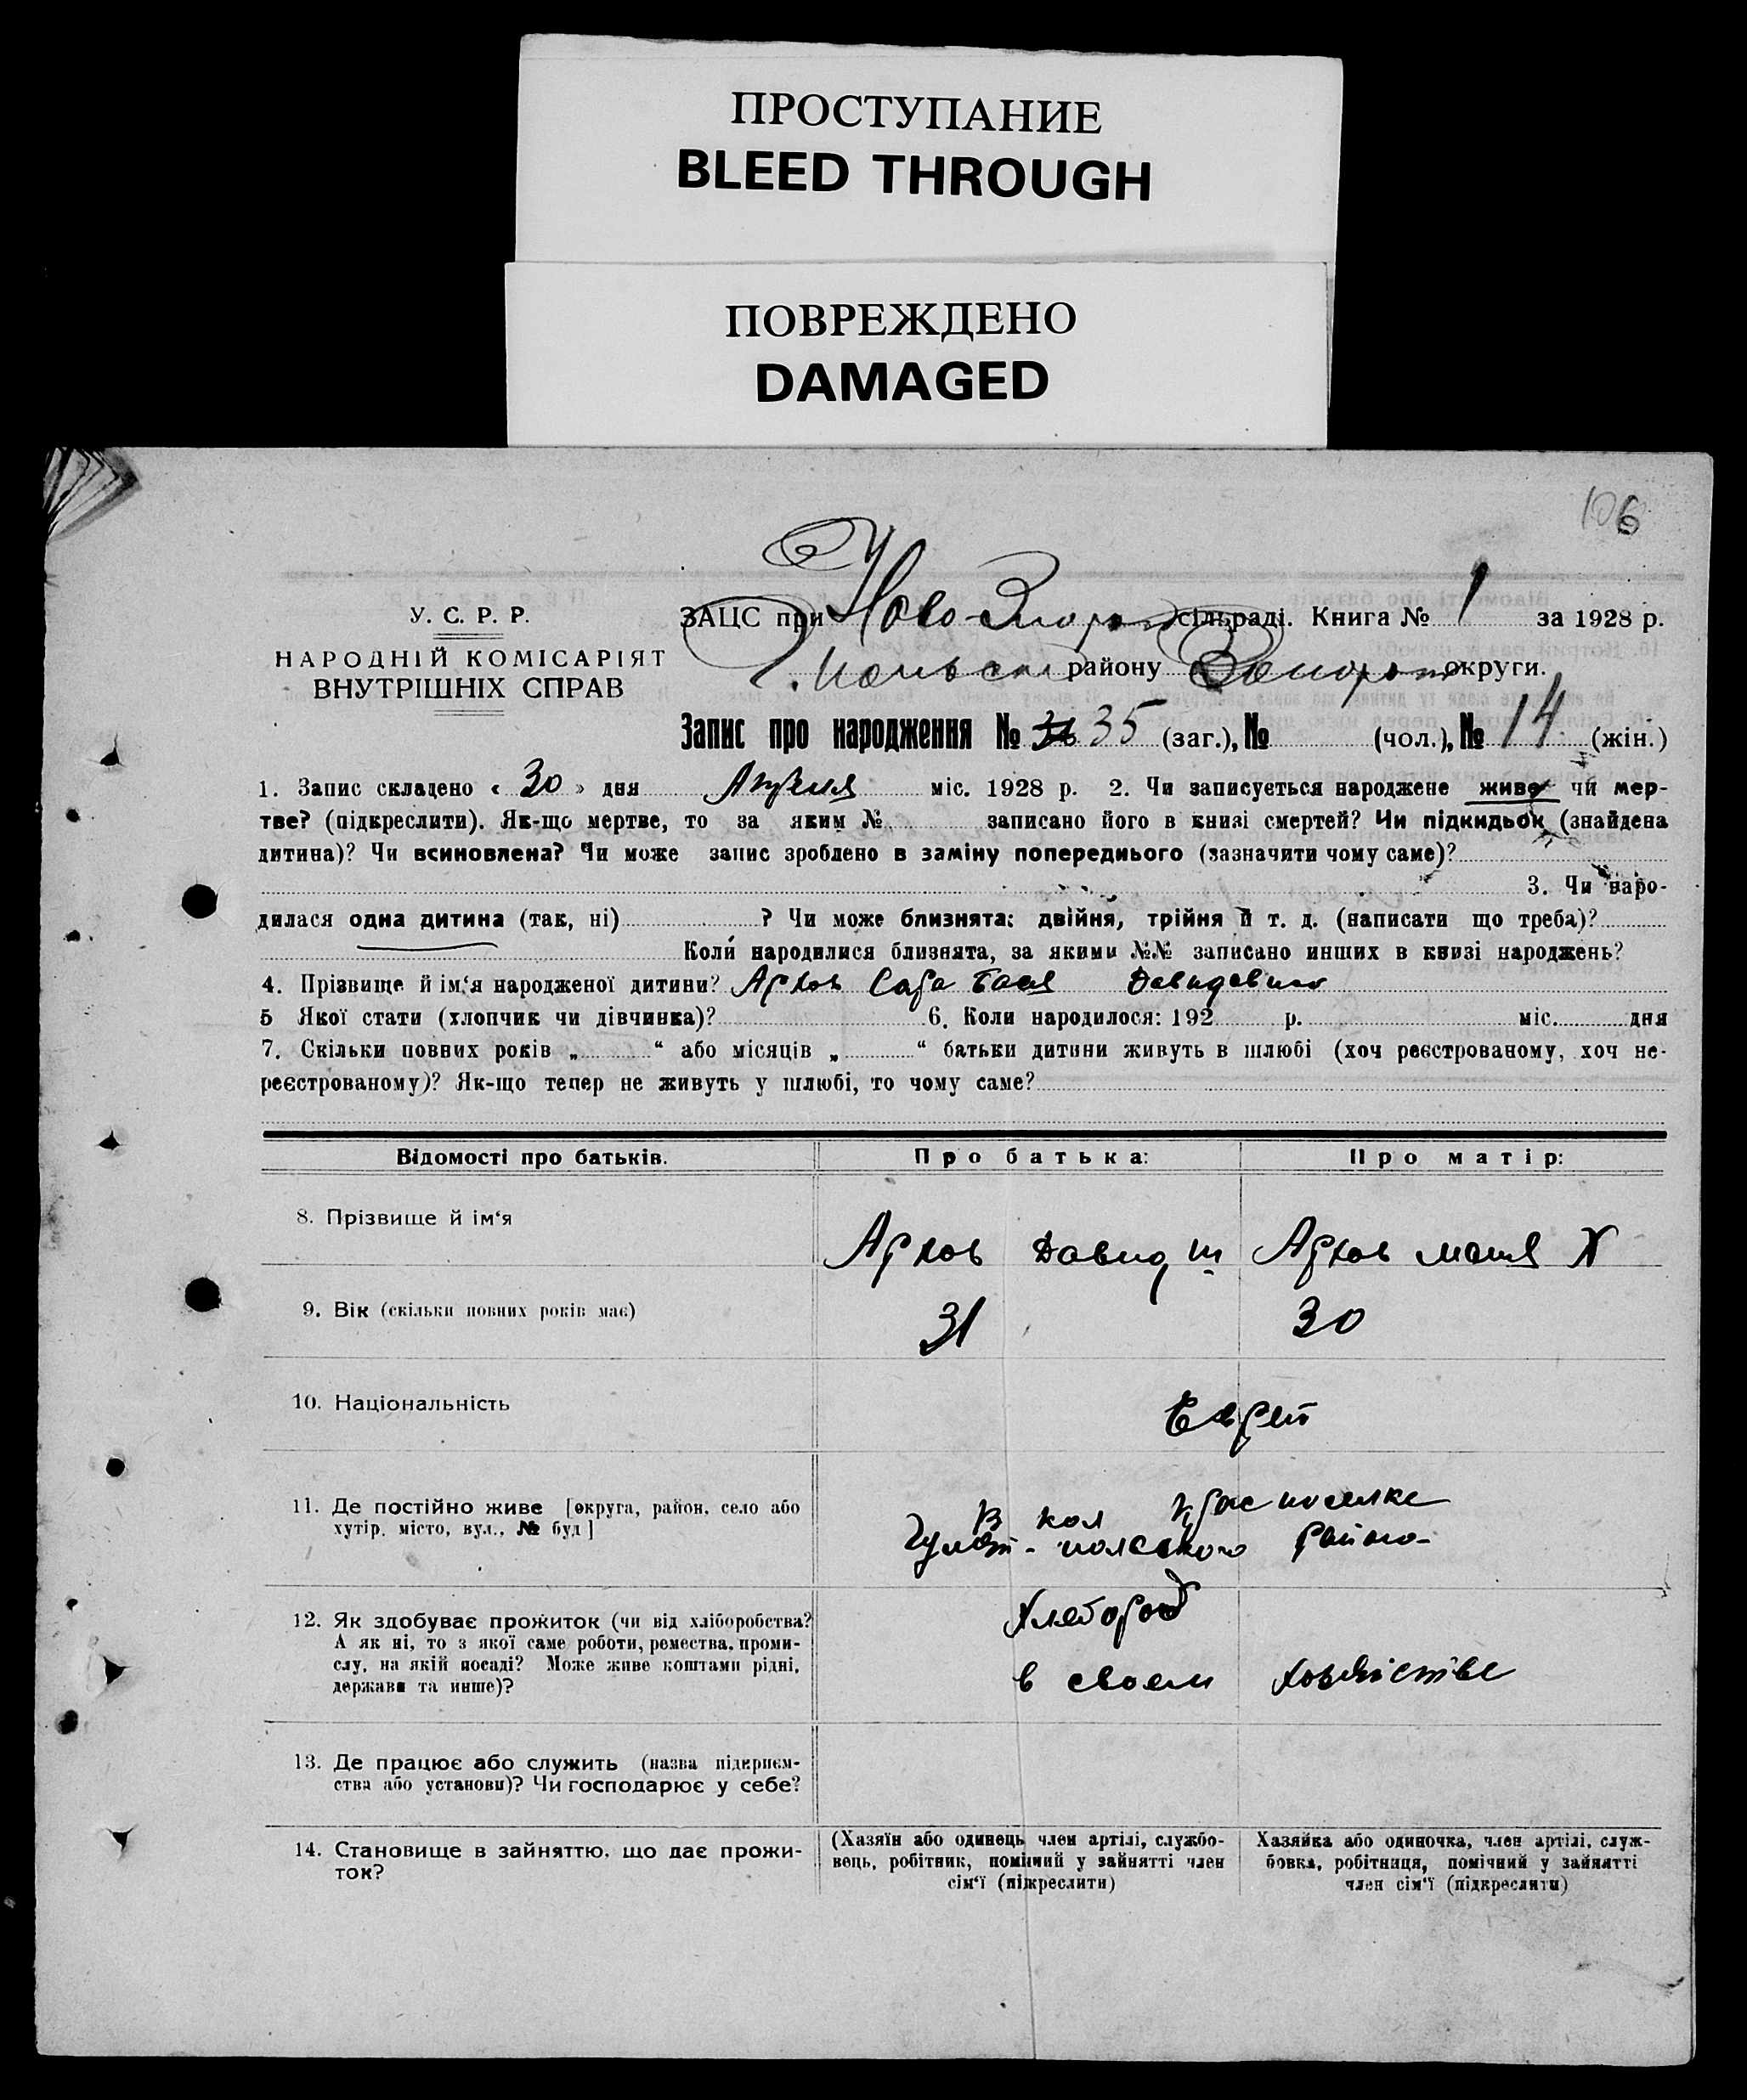 ПРОСТУПАНИЕ
BLEED THROUGH
ПОВРЕЖДЕНО
DAMAGED
106
У. С. Р. Р.
НАРОДНІЙ КОМІСАРІЯТ
ВНУТРІШНІХ СПРАВ
ЗАЦС при Ново- сільраді. Книга № 1 за 1928 р.
району округи.
Запис про народження № 35 (заг.), № (чол.), № 14 (жін.)
1. Запис складено « 30 » дня Апреля міс. 1928 р. 2. Чи записується народжене живе чи мер-
тве? (підкреслити). Як-що мертве, то за яким № записано його в книзі смертей? Чи підкидьок (знайдена
дитина)? Чи всиновлена? Чи може запис зроблено в заміну попереднього (зазначити чому саме)?
3. Чи наро-
дилася одна дитина (так, ні) ? Чи може близнята: двійня, трійня й т. д. (написати що треба)?
Коли народилися близнята, за якими №№ записано инших в книзі народжень?
4. Прізвище й ім‘я народженої дитини? Сара Бася
5 Якої стати (хлопчик чи дівчинка)? 6. Коли народилося: 192 р. міс. дня
7. Скільки повних років „ “ або місяців „ “ батьки дитини живуть в шлюбі (хоч реєстрованому, хоч не-
реєстрованому)? Як-що тепер не живуть у шлюбі, то чому саме?
Відомості про батьків. Про батька: Про матір:
8. Прізвище й ім‘я Давид
9. Вік (скільки повних років має) 31 30
10. Національність Еврей
11. Де постійно живе [округа, район, село або
хутір, місто, вул., № буд]
В кол
12. Як здобуває прожиток (чи від хліборобства?
А як ні, то з якої саме роботи, ремества, проми-
слу, на якій посаді? Може живе коштами рідні,
держави та инше)?
Хлебороб
в своем
13. Де працює або служить (назва підприєм-
ства або установи)? Чи господарює у себе?
14. Становище в зайняттю, що дає прожи-
ток?
(Хазяїн або одинець член артілі, службо-
вець, робітник, помічний у зайнятті член
сім‘ї (підкреслити)
Хазяйка або одиночка, член артілі, служ-
бовка, робітниця, помічний у зайнятті
член сім‘ї (підкреслити)